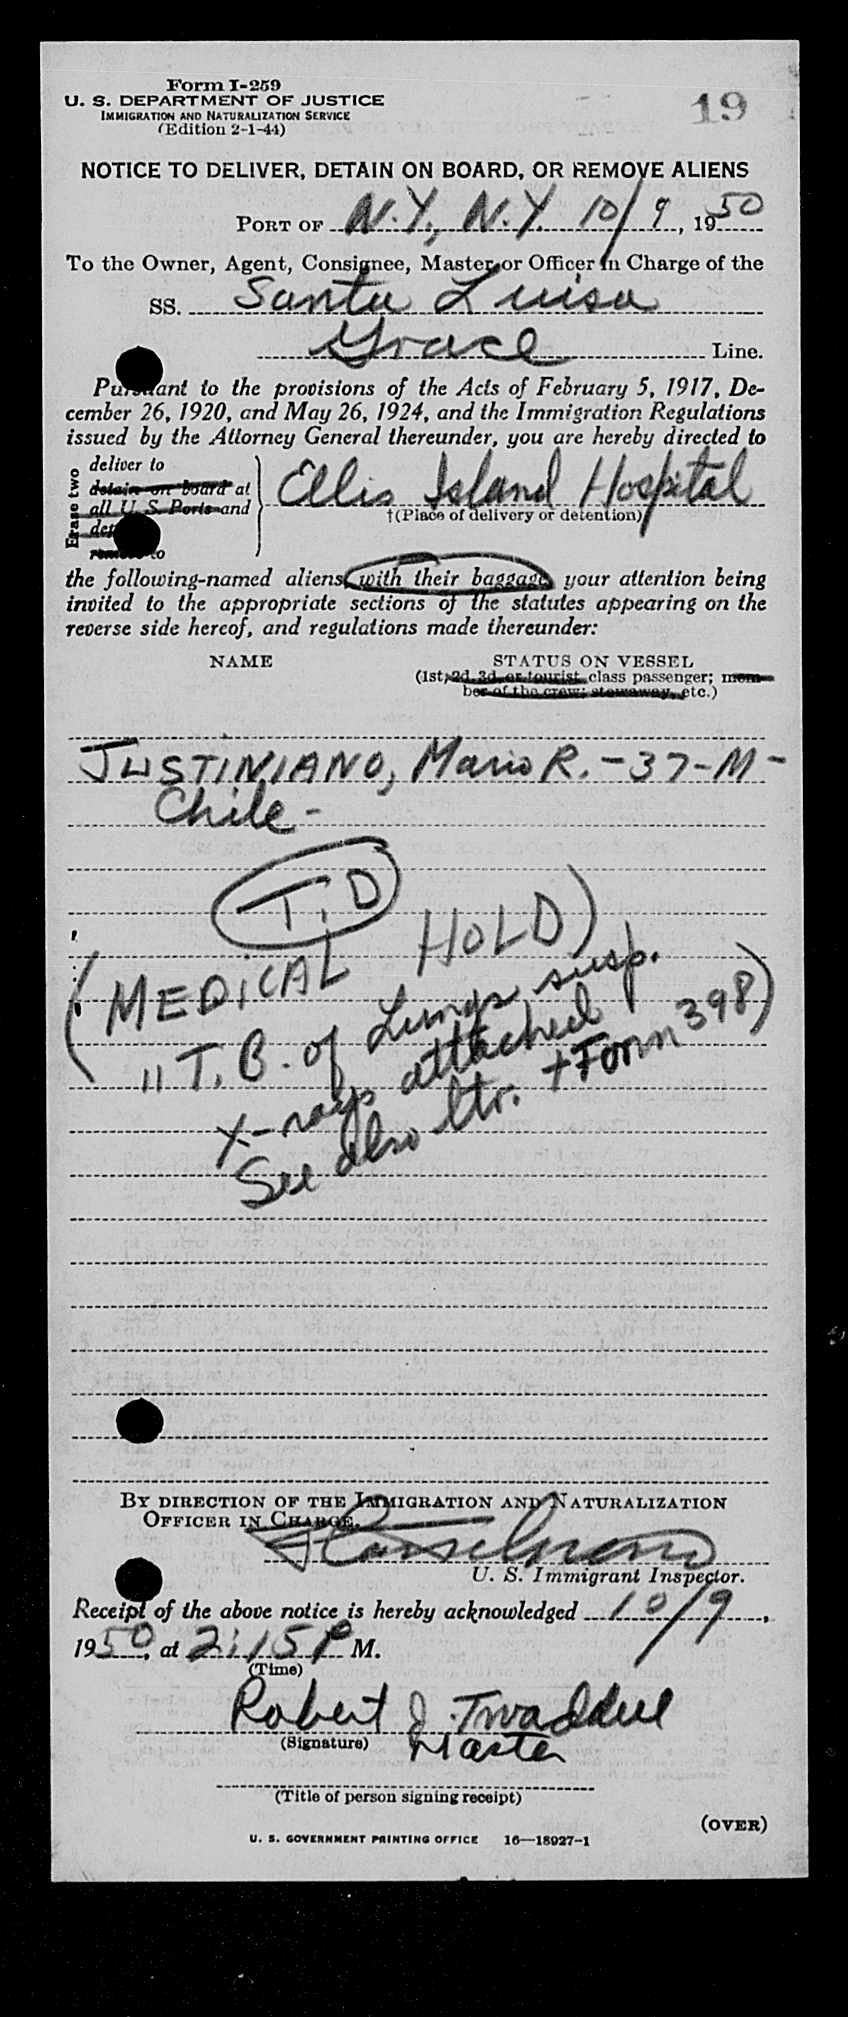 Form I-259
U. S. DEPARTMENT OF JUSTICE
IMMIGRATION AND NATURALIZATION SERVICE
(Edition 2-1-44)
19
NOTICE TO DELIVER, DETAIN ON BOARD, OR REMOVE ALIENS
PORT OF N.Y., N.Y. 10/9, 1950
To the Owner, Agent, Consignee, Master, or Officer in Charge of the
SS. Santa Luisa
Grace Line.
Pursuant to the provisions of the Acts of February 5, 1917, De-
cember 26, 1920, and May 26, 1924, and the Immigration Regulations
issued by the Attorney General thereunder, you are hereby directed to
Erase two
deliver to
detain on board at
all U. S. Ports and
remove to
Ellis Island Hospital
†(Place of delivery or detention)
the following-named aliens, with their baggage, your attention being
invited to the appropriate sections of the statutes appearing on the
reverse side hereof, and regulations made thereunder:
NAME
STATUS ON VESSEL
(1st, 2d, 3d, or tourist class passenger; mem-
ber of the crew; stowaway, etc.)
JUSTINIANO, Mario R. - 37 - M -
Chile -
T.D
(MEDICAL HOLD)
(" T.B. of Lungs susp.
X-rays attached
See also ltr. + Form 398)
BY DIRECTION OF THE IMMIGRATION AND NATURALIZATION
OFFICER IN CHARGE.
U. S. Immigrant Inspector.
Receipt of the above notice is hereby acknowledged 10/9,
1950, at 2:15 P M.
(Time)
Robert J. Twaddell
(Signature) Master
(Title of person signing receipt)
(OVER)
U. S. GOVERNMENT PRINTING OFFICE 16—18927-1